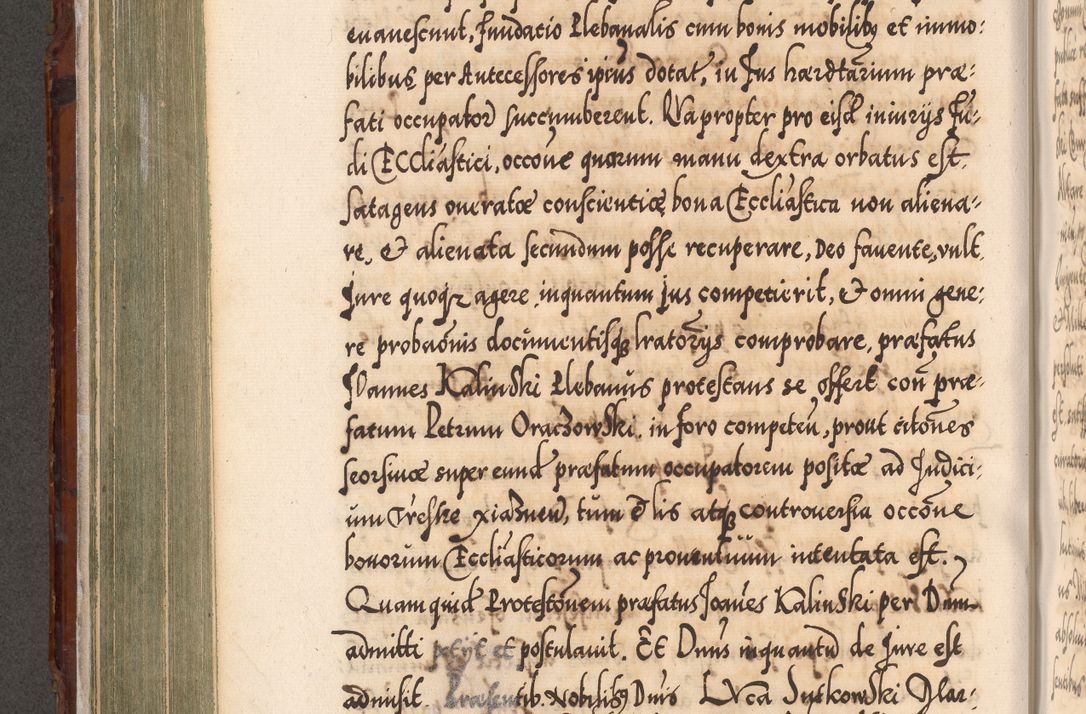 euanescunt, fundatio Plebanalis cum bonis mobilibq et immo:
bilibus per Antecessores ipius dotat, in Jus hærdtarium præ:
fati occupator succumberent. Quapropter pro eisd iniurijs Ju:
di Eccliastici, occone quorum manu dextra orbatus est.
satagens oneratæ conscientiæ bona Eccliastica non aliena:
re, & alienata secundum posse recuperare, Deo fauente, vult
Jure quoq agere inquantum jus competierit, & omni gene:
re probaonis documentisq lratorijs comprobare, præfatus
Joannes Kalinski Plebanus protestans se offert con præ:
fatum Petrum Oraczowski. in foro competen, prout citones
seorsiuæ super eund præfatum occupatorem positæ ad Judici:
um Treske xiaznen, tum & lis atq controuersia occone
bonorum Eccliasticorum ac prouentuum intentata est.
Quamquid Protestonem præfatus Joanes Kalinski per Dnm
admitti petijt et postulauit. Et Dnus inquantu de Jure est
admisit. Præsentib. Nobilibq Dnis Lvca Sutkowski Mar: